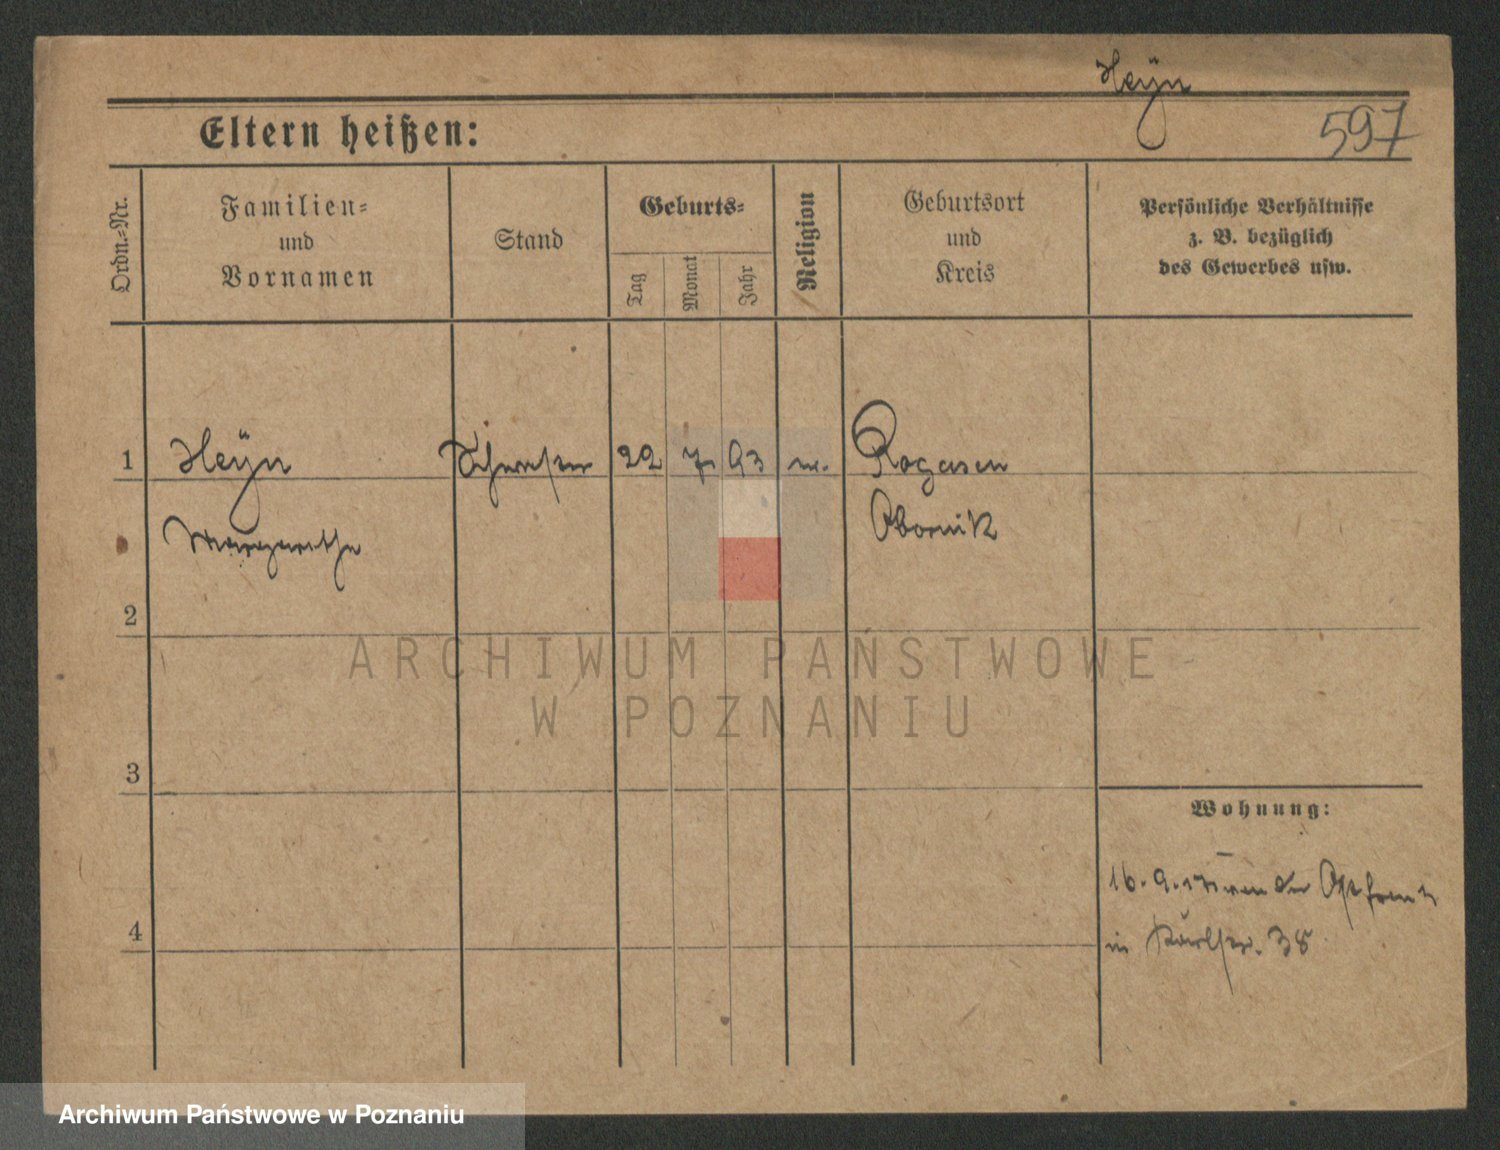 Heÿn
Eltern heißen:
597
Ordn.-Nr.
Familien-
und
Vornamen
Stand
Geburts-
Tag
Monat
Jahr
Religion
Geburtsort
und
Kreis
Persönliche Verhältnisse
z. B. bezüglich
des Gewerbes usw.
1
Heÿn
Schwester
22
7
93
Rogasen
Margarethe
Obornik
2
ARCHIWUM PAŃSTWOWE
W POZNANIU
3
Wohnung:
16. 9. 17 von der Ostfront
4
in Karlstr. 38
Archiwum Państwowe w Poznaniu